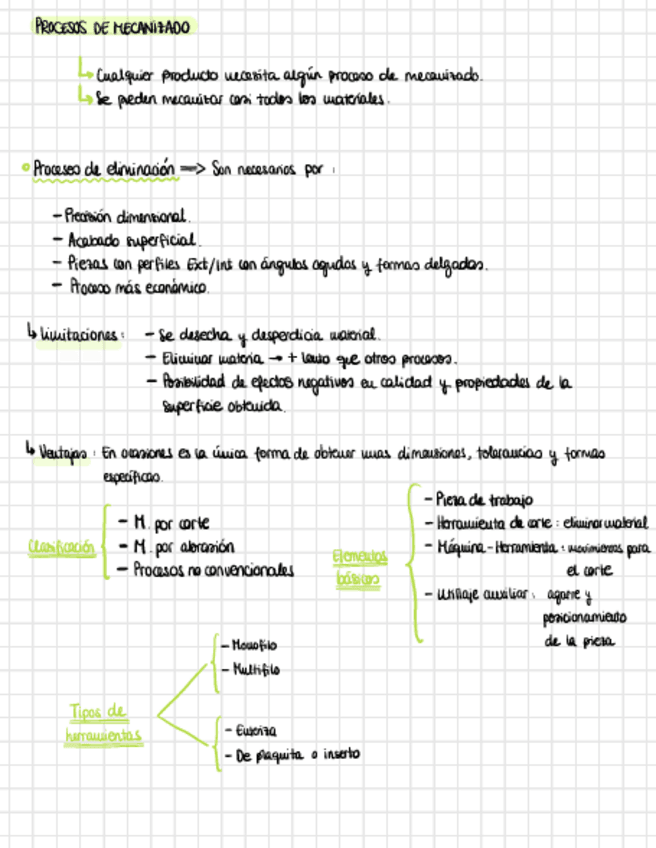 PROCESOS DE MECANIZADO
Cualquier producto necesita algún proceso de mecanizado.
Se pueden mecanizar casi todos los materiales.
Procesos de eliminación => Son necesarios por :
- Precisión dimensional.
- Acabado superficial.
- Piezas con perfiles Ext/Int con ángulos agudos y formas delgadas.
- Proceso más económico.
↳ Limitaciones: - Se desecha y desperdicia material.
- Eliminar materia → + lento que otros procesos.
- Posibilidad de efectos negativos en calidad y propiedades de la
superficie obtenida.
↳ Ventajas: En ocasiones es la única forma de obtener unas dimensiones, tolerancias y formas
específicas.
Clasificación
- M. por corte
- M. por abrasión
- Procesos no convencionales
Elementos
básicos
- Pieza de trabajo
- Herramienta de corte: eliminar material
- Máquina-Herramienta: movimientos para
el corte
- Utillaje auxiliar: agarre y
posicionamiento
de la pieza
Tipos de
herramientas
- Monofilo
- Multifilo
- Enteriza
- De plaquita o inserto